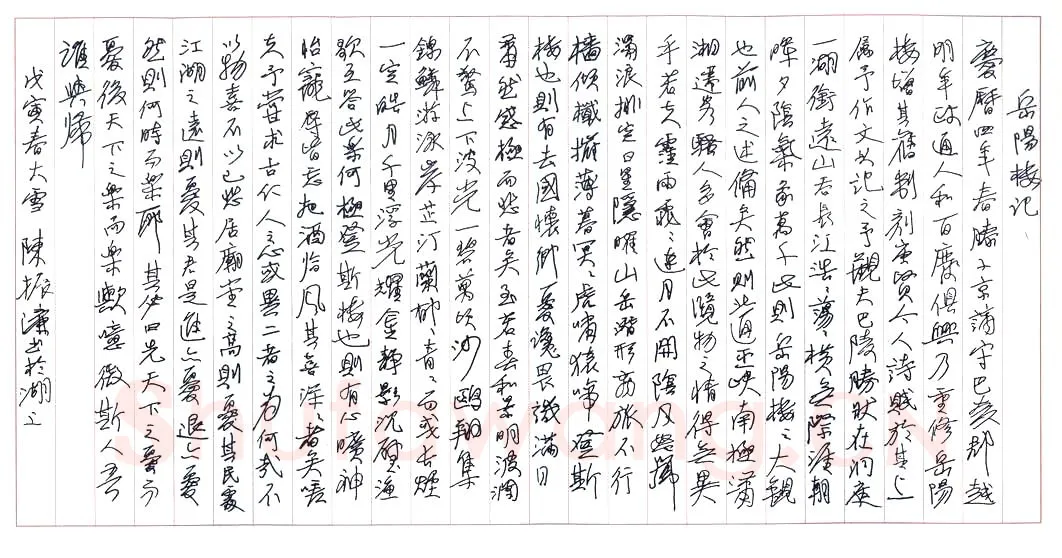 岳陽樓記
慶曆四年春滕子京謫守巴陵郡越
明年政通人和百廢俱興乃重修岳陽
樓增其舊制刻唐賢今人詩賦於其上
屬予作文以記之予觀夫巴陵勝狀在洞庭
一湖銜遠山吞長江浩々蕩々橫無際涯朝
暉夕陰氣象萬千此則岳陽樓之大觀
也前人之述備矣然則北通巫峽南極瀟
湘遷客騷人多會於此覽物之情得無異
乎若夫霪雨霏々連月不開陰風怒號
濁浪排空日星隱曜山岳潛形商旅不行
檣傾檝摧薄暮冥々虎嘯猿啼登斯
樓也則有去國懷鄉憂讒畏譏滿目
蕭然感極而悲者矣至若春和景明波瀾
不驚上下波光一碧萬頃沙鷗翔集
錦鱗游泳岸芷汀蘭郁々青々而或長煙
一空皓月千里浮光耀金靜影沉璧漁
歌互答此樂何極登斯樓也則有心曠神
怡寵辱皆忘把酒臨風其喜洋々者矣嗟
夫予嘗求古仁人之心或異二者之為何哉不
以物喜不以己悲居廟堂之高則憂其民處
江湖之遠則憂其君是進亦憂退亦憂
然則何時而樂耶其必曰先天下之憂而
憂後天下之樂而樂歟噫微斯人吾
誰與歸
戊寅春大雪 陳振濂書於湖上
Shufawang.CN